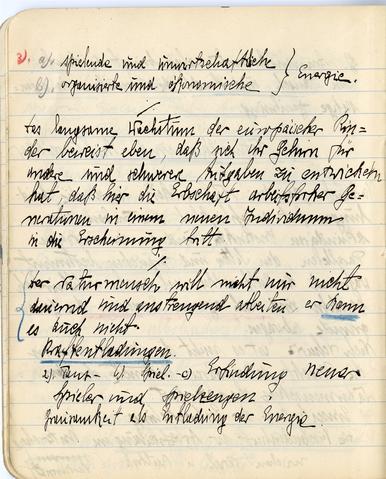 3). a). spielende und unwirtschaftliche
b). organisierte und ökonomische } Energie.
Das langsame Wachstum der europäischer Kin=
der beweist eben, daß sich ihr Gehirn für
andre und schwerere Aufgaben zu entwickeln
hat, daß hier die Erbschaft arbeitsfroher Ge=
nerationen in einem neuen Individuum
in die Erscheinung tritt
Der Naturmensch will nicht nur nicht
dauernd und anstrengend arbeiten er kann
es auch nicht.
Kraftentladungen.
a) Tanz - b) Spiel. - c) Erfindung neuer
Spiele und Spielzeugen.
Grausamkeit als Entladung der Energie.